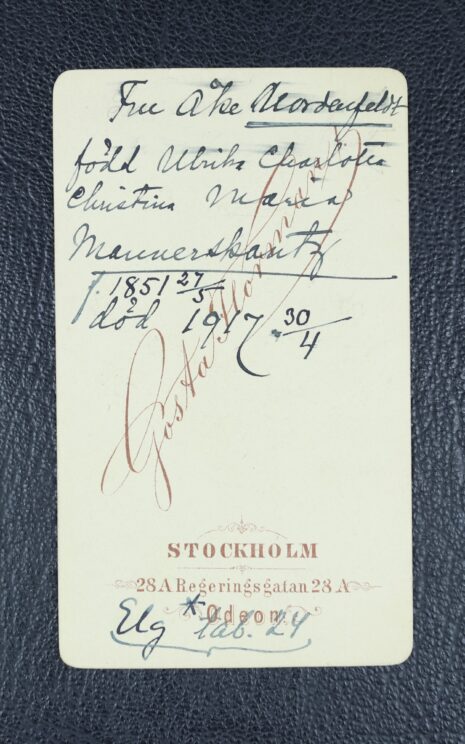 Fru Åke Nordenfeldt
född Ulrika Charlotta
Christina Maria
Mannerskantz
f. 1851 27/5
död 1917 30/4
Gösta Florman
STOCKHOLM
28 A Regeringsgatan 28 A
Odeon.
Elg * tab. 24